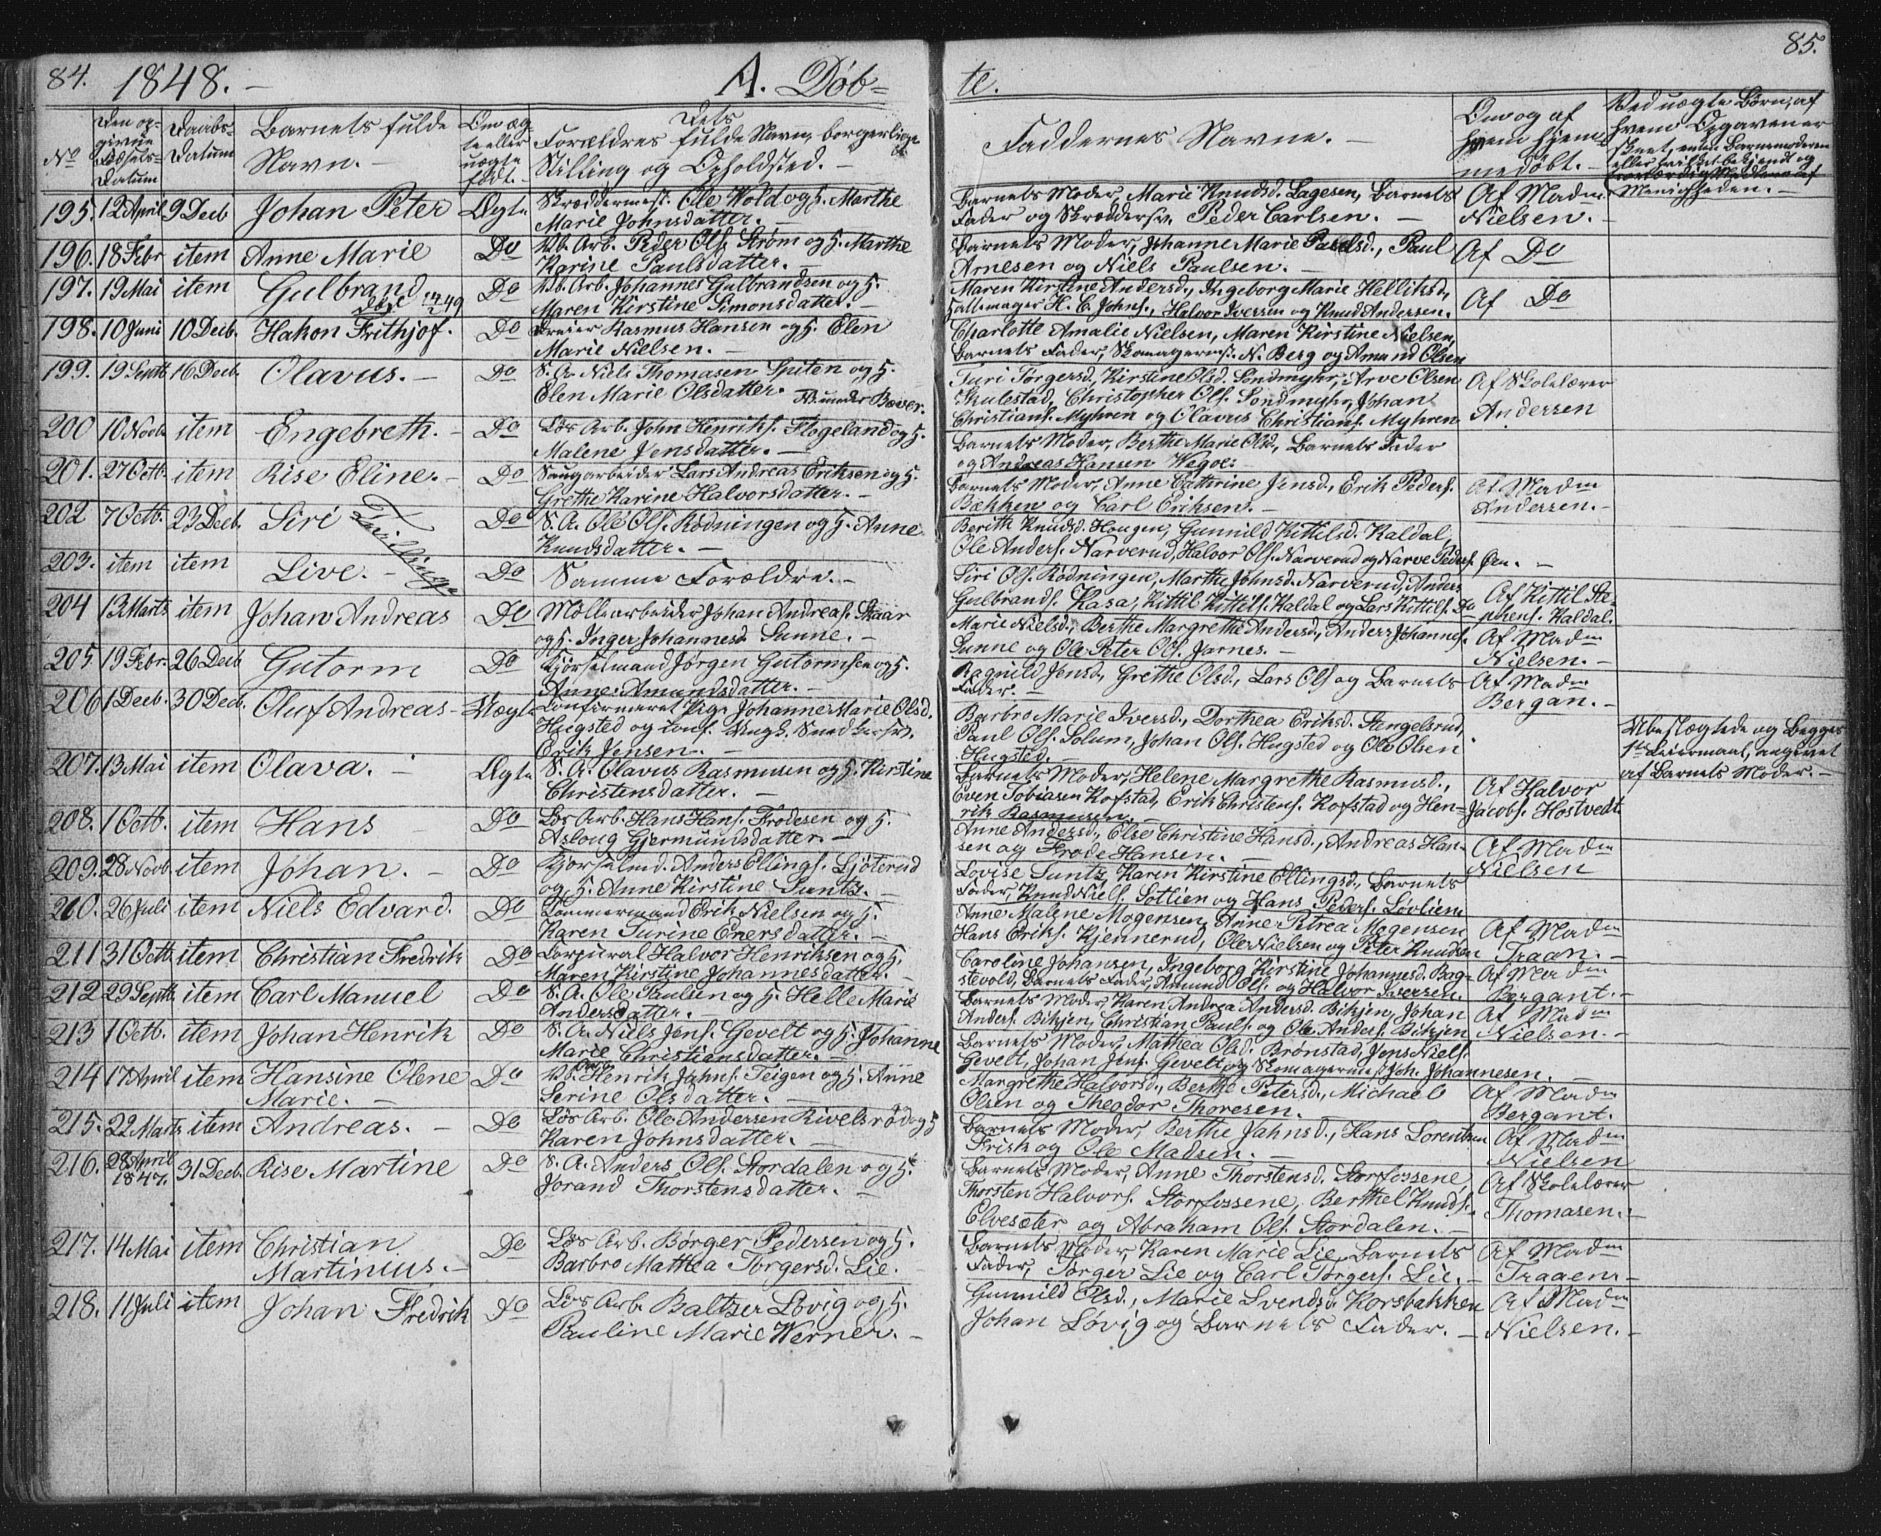 84. 1848. — A. Døb=
No
Den op-
givne
Fødsels-
Datum
Daabs-
Datum
Barnets fulde
Navn. —
Om æg-
te eller
uægte
født.
Dets
Forældres fulde Navn, borgerlige
Stilling og Opholdsted. —
195. 12 April 9 Decb Johan Peter Ægte Skræddermest. Ole Wold og H. Marthe
Marie Johnsdatter. —
196. 18 Febr item Anne Marie Do Vb. Arb. Peder Ols. Strøm og H. Marthe
Karine Paulsdatter. —
197. 19 Mai item Gulbrand Do Vb. Arb. Johannes Gulbrandsen og H.
Maren Kirstine Simonsdatter. —
198. 10 Juni 10 Decb. Hakon Frithjof. Do Dreier Rasmus Hansen og H. Elen
Marie Nielsen. —
199. 19 Septb 16 Decb. Olavus. — Do S. A. Niels Thomasen Sputen og H.
Elen Marie Olsdatter. Fb. under Bæver.
200 10 Novb item Engebreth. — Do Løs Arb. John Henriks. Flogeland og H.
Malene Jensdatter. —
201. 27 Octb. item Rise Eline. — Do Saugarbeider Lars Andreas Eriksen og H.
Grethe Karine Halvorsdatter. —
202 7 Octb. 23 Decb. Siri Tvillinge Do S. A. Ole Ols. Rødningen og H. Anne
Knudsdatter. —
203. item item Live. — Do Samme Forældre. —
204 13 Marts item Johan Andreas Do Møllearbeider Johan Andreas. Skaar
og H. Inger Johannesd. Sunne. —
205. 19 Febr. 26 Decb Gutorm Do Kjørselmand Jørgen Gutormsen og H.
Anne Amundsdatter. —
206 1 Decb. 30 Decb. Oluf Andreas — Uægte Confirmeret Pige Johanne Marie Olsd.
Hugsted og conf. Ungk.
Erik Jensen. —
207. 13 Mai item Olava. — Ægte S. A. Olavus Rasmusen og H. Kirstine
Christensdatter. —
208. 1 Octb. item Hans Do Løs Arb. Hans Hans. Frodesen og H.
Asloug Gjermundsdatter —
209. 28 Novb. item Johan. — Do Kjørselmd. Anders Ellings. Sjøterud
og H. Anne Kirstine Suntz. —
210. 26 Juli item Niels Edvard. Do Tømmermand Erik Nielsen og H.
Karen Turine Enersdatter. —
211 31 Octb item Christian Fredrik Do Corpural Halvor Henriksen og H.
Maren Kirstine Johannesdatter. —
212 29 Septb. item Carl Manuel Do S. A. Ole Paulsen og H. Helle Marie
Andersdatter. —
213 1 Octb. item Johan Henrik Do S. A. Niels Jens. Gevelt og H. Johanne
Marie Christiansdatter. —
214 17 April item Hansine Olene
Marie. — Do Vb. Henrik Johns. Teigen og H. Anne
Serine Olsdatter. —
215. 22 Marts item Andreas. — Do Løs Arb. Ole Andersen Rivelsrød og H
Karen Johnsdatter. —
216. 28 April
1847. 31 Decb. Rise Martine Do S. A. Anders Ols. Stordalen og H.
Jorand Thorstensdatter. —
217. 14 Mai item Christian
Martinius. — Do Løs Arb. Børger Pedersen og H.
Barbro Mathea Torgersd. Lie.
218. 11 Juli item Johan Fredrik Do Løs Arb. Baltzer Løvig og H.
Pauline Marie Werner. —
te. 85.
Faddernes Navne. —
Om og af
hvem hjem=
medøbt. —
Ved uægte Børn, af
hvem Opgaven er
skeet, enten Barnemoderen
eller hvilket bekjendt og
troværdigt Medlem af
Menigheden. —
Barnets Moder, Marie Knudsd. Lagesen, Barnets
Fader og Skræddersv. Peder Carlsen. — Af Madm.
Nielsen. —
Barnets Moder, Johanne Marie Paulsd., Paul
Arnesen og Niels Paulsen. — Af Do
Maren Kirstine Andersd., Ingeborg Marie Helliksd.,
Sallemager H. C. Johns., Halvor Iversen og Knud Andersen. Af Do
Charlotte Amalie Nielsen, Maren Kirstine Nielsen,
Barnets Fader, Skomagerm. N. Berg og Amund Olsen
Turi Torgersd., Kirstine Olsd. Sondmyhr, Arve Olsen
Thulestad, Christopher Ols. Sondmyhr, Johan
Christians. Myhren og Olavus Christians. Myhren Af Skolelærer
Andersen
Barnets Moder, Berthe Marie Olsd., Barnets Fader
og Andreas Hansen Wegoe:
Barnets Moder, Anne Cathrine Jensd., Erik Peders.
Bækken og Carl Eriksen. — Af Madm
Andersen. —
Berith Knudsd. Hougen, Gunnild Kittilsd. Kaldal,
Ole Anders. Narverud, Halvor Ols. Narverud og Narve Peders. Øen. —
Siri Ols. Rødningen, Marthe Johnsd. Narverud, Anders
Gulbrands. Kasa, Kittil Kittils. Kaldal og Lars Kittils. Do Af Kittil Ste-
phens. Kaldal.
Marie Nielsd., Berthe Margrethe Andersd., Anders Johannes.
Sunne og Ole Peter Ols. Jarnes. — Af Madm
Nielsen. —
Ragnild Jensd., Grethe Olsd., Lars Ols og Barnets
Fader. — Af Madm
Bergan. —
Barbro Marie Iversd., Dorthea Eriksd. Stengelsrud,
Paul Ols. Solum, Johan Ols. Hugsted og Ole Olsen
Hugsted. — Ubeslægtede og Begges
1ste Leiermaal, angivet
af Barnets Moder. —
Barnets Moder, Helene Margrethe Rasmusd.,
Even Tobiasen Kofstad, Erik Christens. Kofstad og Hen=
rik Rasmusen. — Af Halvor
Jacobs. Hostvedt
Anne Andersd., Else Christine Hansd., Andreas Han-
sen og Frode Hansen. — Af Madm
Nielsen
Lovise Suntz, Karen Kirstine Ellingsd., Barnets
Fader, Knud Niels. Sotlien og Hans Peders. Løvlien
Anne Malene Mogensen, Anne Petrea Mogensen
Hans Eriks. Kjennerud, Ole Nielsen og Peter Knudsen Af Madm
Traan. —
Caroline Johansen, Ingeborg Kirstine Johannesd. Bag-
stevold, Barnets Fader, Amund Ols. og Halvor Iversen. Af Madm
Bergant. —
Barnets Moder, Karen Andrea Andersd. Bikjen, Johan
Anders. Bikjen, Christian Pauls. og Ole Anders. Bikjen Af Madm
Nielsen. —
Barnets Moder, Mathea Olsd. Brønstad, Jens Niels.
Gevelt, Johan Jens. Gevelt og Skomagerm. Joh. Johannesen. —
Margrethe Halvorsd., Berthe Petersd., Michael
Olsen og Theodor Thoresen. — Af Madm
Bergant.
Barnets Moder, Berthe Jahnsd., Hans Lorentsen
Frisk og Ole Madsen. — Af Madm
Nielsen
Barnets Moder, Anne Thorstensd. Storfossene,
Thorsten Halvors. Storfossene, Berthel Knuds.
Elvesæter og Abraham Ols. Stordalen. — Af Skolelærer
Thomasen. —
Barnets Moder, Karen Marie Lie, Barnets
Fader, Torger Lie og Carl Torgers. Lie. — Af Madm
Traaen. —
Gunnild Olsd., Marie Svendsd. Korsbakken
Johan Løvig og Barnets Fader. — Af Madm
Nielsen. —